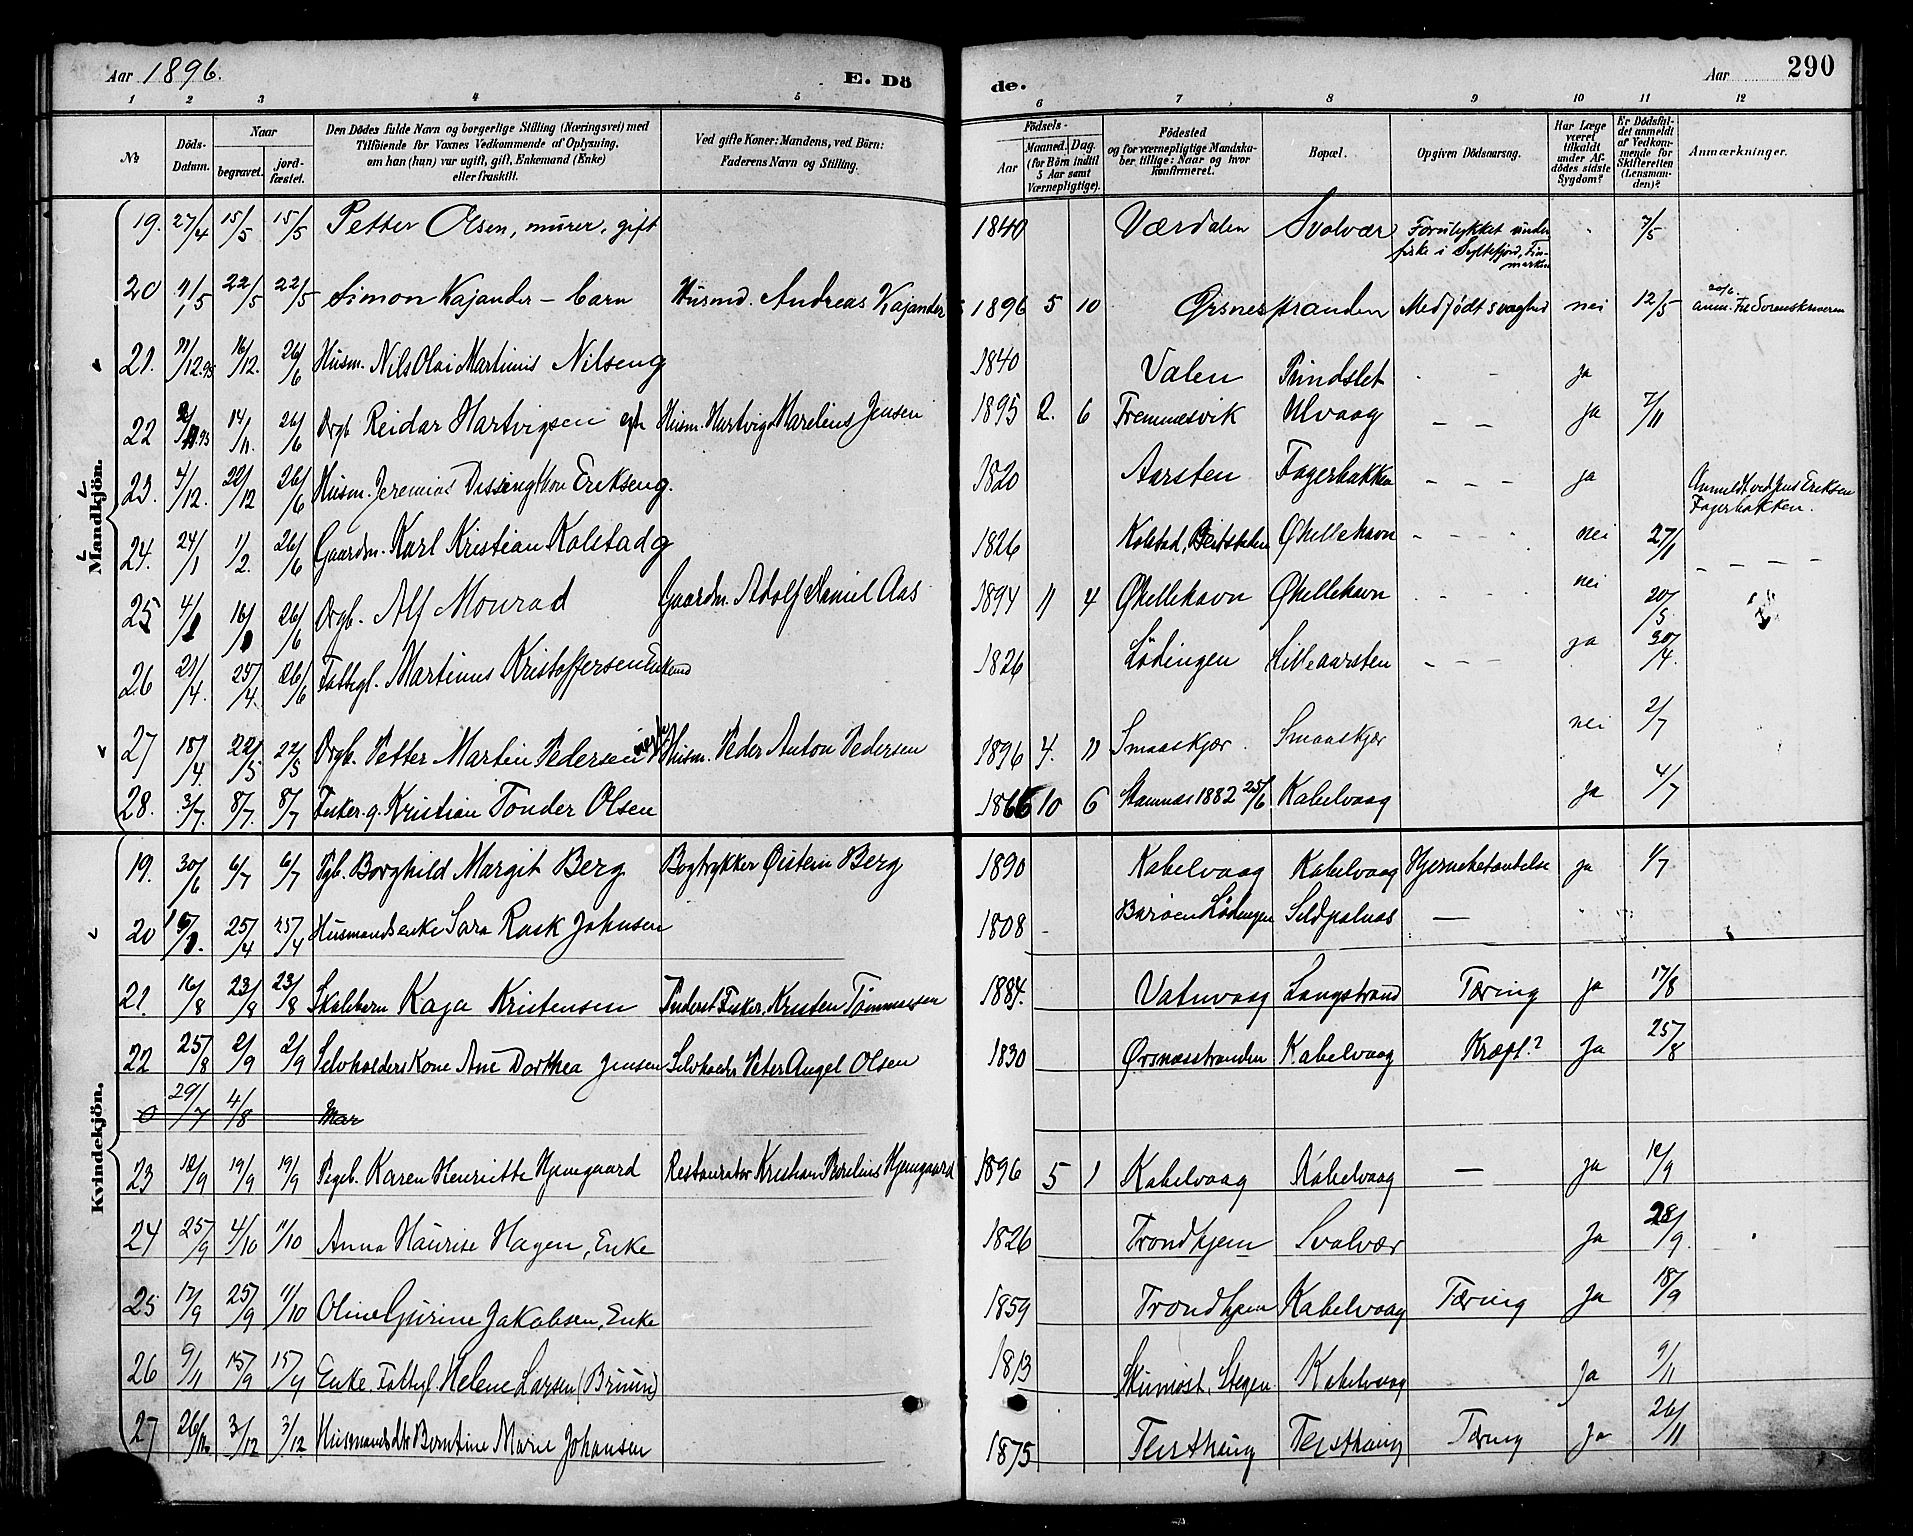 Aar 1896. E. Dö de. Aar 290
1 2 3 4 5 6 7 8 9 10 11 12
№ Döds-Datum. Naar begravet. jord-fæstet. Den Dödes fulde Navn og borgerlige Stilling (Næringsvei) med Tilföiende for Voxnes Vedkommende af Oplysning, om han (hun) var ugift, gift, Enkemand (Enke) eller fraskilt. Ved gifte Koner: Mandens, ved Börn: Faderens Navn og Stilling. Födsels- Aar Maaned. Dag. (for Börn indtil 5 Aar samt Værnepligtige). Födested og for værnepligtige Mandskaber tillige: Naar og hvor konfirmeret. Bopæl. Opgiven Dödsaarsag. Har Læge været tilkaldt under Afdödes sidste Sygdom? Er Dödsfaldet anmeldt af Vedkommende for Skifteretten (Lensmanden)? Anmærkninger.
Mandkjön.
19. 27/4 15/5 15/5 Petter Olsen, murer, gift 1840 Værdalen Svolvær Forulykket under fiske i Syltefjord, Finmarken 7/5
20 11/5 22/5 22/5 Simon Kajander - barn Husmd. Andreas Kajander 1896 5 10 Ørsnesstranden Medfødt svaghed nei 12/5 20/6 anm. til Sorenskriveren
21. 11/12.95 16/12. 26/6 Husm. Nils Olai Martinus Nilsen g 1840 Valen Rindslet - - ja
22 14/11. 26/6 Drgb Reidar Hartvigsen Husm. Hartvig Marelius Jensen 1895 2. 6 Fremnesvik Ulvaag - - ja 7/11
23. 4/12. 22/12 26/6 Husm. Jeremias Eriksen g. 1820 Aarsten Fagerbakken - - - ja Anmeldt ved Jens Eriksen Fagerbakken.
24. 24/1 1/2. 26/6 Gaardm. Karl Kristian Kolstad g 1826 Kolstad, Beitstaden Øhellehavn - - - nei 27/1 - - - -
25 4/1 16/1 26/6 Drgb. Alf Monrad Gaardm. Adolf Daniel Aas 1894 11 4 Øhellehavn Øhellehavn - - - nei 20/5
26 21/4. 25/4. 26/6 Fattigl. Martinus Kristoffersen Enkmd 1826 Lødingen Lilleaarsten - - - ja 30/4.
27 18/4. 22/5 22/5 Drgb. Petter Martin Pedersen Husm. Peder Anton Pedersen 1896 4. 11 Smaaskjær. Smaaskjær nei 2/7
28. 3/7. 8/7. 8/7 Fisker. g. Kristian Tonder Olsen 1866 10 6 Stamnes 1882 25/6 Kabelvaag ja 4/7
Kvindekjön.
19. 30/6 6/7 6/7 Pgb. Borghild Margit Berg Bogtrykker Øistein Berg 1890 Kabelvaag Kabelvaag Hjernebetændelse ja 1/7
20 25/4 25/4 Husmandsenke Sara Rask Johnsen 1808 Barøen Lødingen Sildpolnæs —
21. 16/8 23/8 23/8 Skolebarn Kaja Kristensen Inderst Fisker. Kristen Tømmesen 1884. Vatnvaag Langstrand Tæring ja 17/8
22 25/8 2/9 2/9 Selvholders Kone Ane Dorthea Jensen Selvholdr Peter Angel Olsen 1830 Ørsnæsstranden Kabelvaag Kræft? Ja 25/8
29/7 4/8 Mar
23 12/9 19/9 19/9 Pigeb. Karen Henriette Hjemgaard Restauratør Kristian Hjemgaard 1896 5 1 Kabelvaag Kabelvaag — ja 12/9
24 25/9 4/10 11/10 Anna Haurise Hagen, Enke 1826 Trondhjem Svolvær Ja 28/9.
25 17/9 25/9 11/10 Oline Gurine Jakobsen, Enke 1859 Trondhjem Kabelvaag Tæring Ja 18/9
26 9/11 15/9 15/11 Enke. Fattigl. Helene Larsen (Bruun) 1813 Skumøst, Stegen Kabelvaag Ja 9/11
27 26/11. 3/12 3/12 Husmandsdtr Berntine Marie Johansen 1875 Teisthaug Teisthaug Tæring Ja 26/11